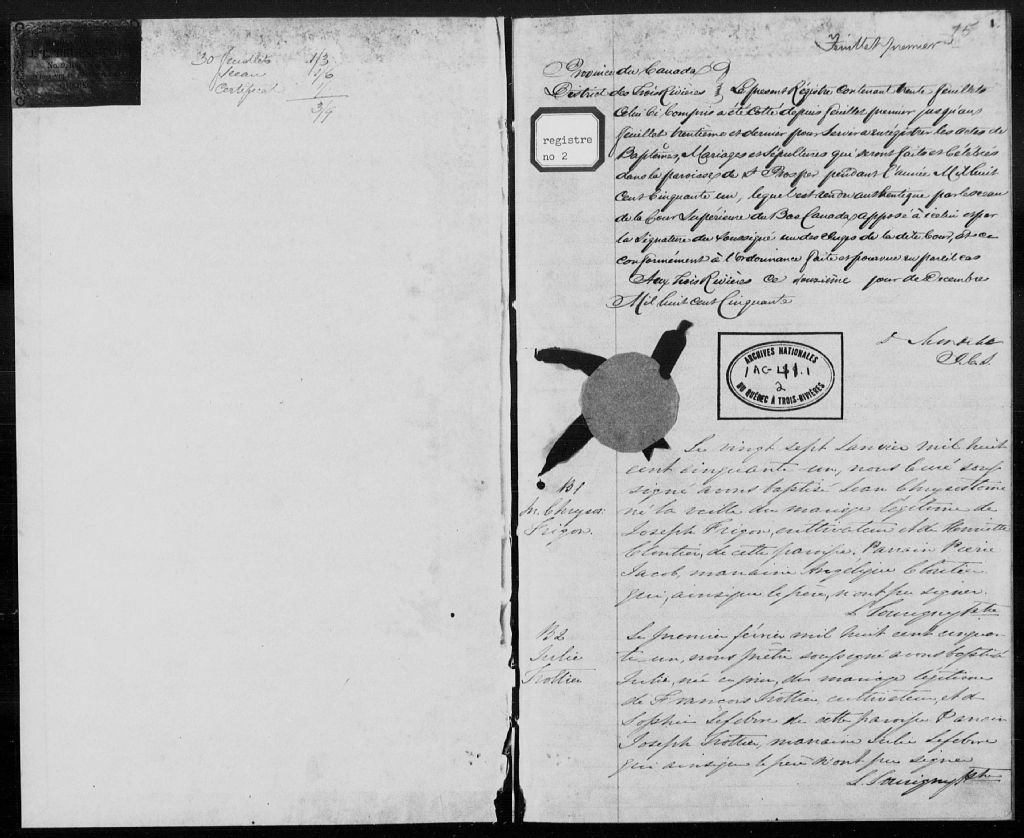 30 feuillets 1/3
Sceau 1/6
Certificat 1/
3/9
75
1.
Feuillet premier
Province du Canada
District des Trois Rivières } Le présent Régistre contenant trente feuillets
celui ci compris a été cotté depuis feuillet premier jusqu'au
feuillet trentieme et dernier pour servir a enrégistrer les actes de
Baptêmes, Mariages et Sépultures qui seront faits et célébrés
dans la paroisse de St Prosper pendant l'année Mil huit
Cent Cinquante un, lequel est rendu authentique par le sceau
de la Cour Supérieure du Bas Canada, apposé à icelui et par
la signature du Soussigné un des clercs de la dite Cour, et ce
conformément à l'ordonnance faite et pourvue en pareil cas
Aux Trois Rivières ce douzième jour de Decembre
Mil huit cent Cinquante
registre
no 2
ARCHIVES NATIONALES
1 AC-41.1
2
DU QUÉBEC À TROIS-RIVIÈRES
Le vingt sept Janvier mil huit
cent cinquante un, nous Curé sous
signé avons baptisé Jean Chrysostôme
né la veille du mariage légitime de
Joseph Frigon, cultivateur et de Henriette
Cloutier, de cette paroisse. Parrain Pierre
Jacob, marraine Angelique Cloutier
qui, ainsi que le père, n'ont pu signer.
L. Souvigny Ptre
B1
Jn. Chrysos:
Frigon.
B2
Julie
Trottier
Le premier février mil huit cent cinquan
te un, nous prêtre soussigné avons baptisé
Julie, née ce jour, du mariage légitime
de Francois Trottier, cultivateur, et de
Sophie Lefebvre de cette paroisse Parrain
Joseph Trottier, marraine Julie Lefebvre
qui ainsi que le père n'ont pu signer
L. Souvigny Ptre